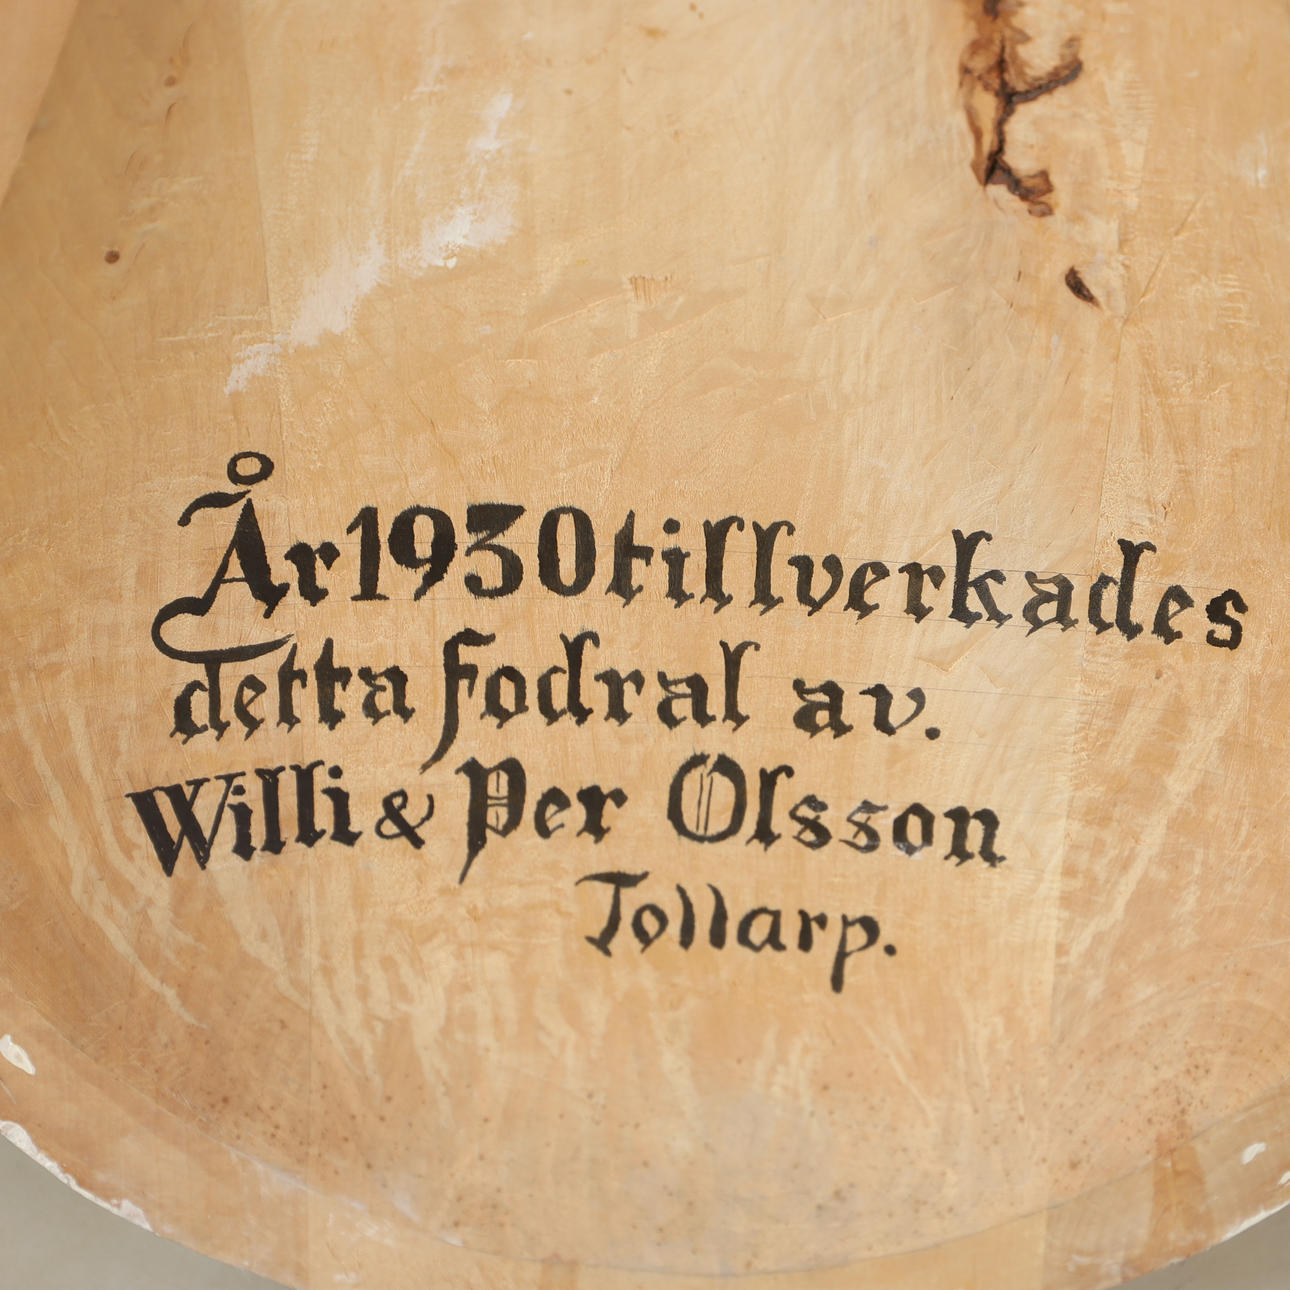 År 1930 tillverkades
detta fodral av.
Willi & Per Olsson
Tollarp.